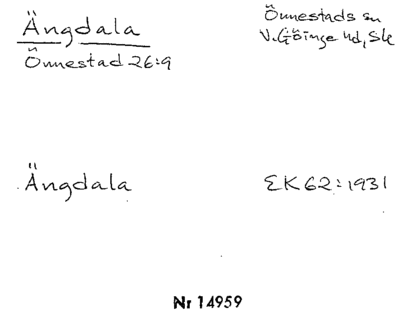 Ängdala
Önnestad 26:9
Önnestads sn
V. Göinge hd, Sk
Ängdala
EK 62:1931
Nr 14959